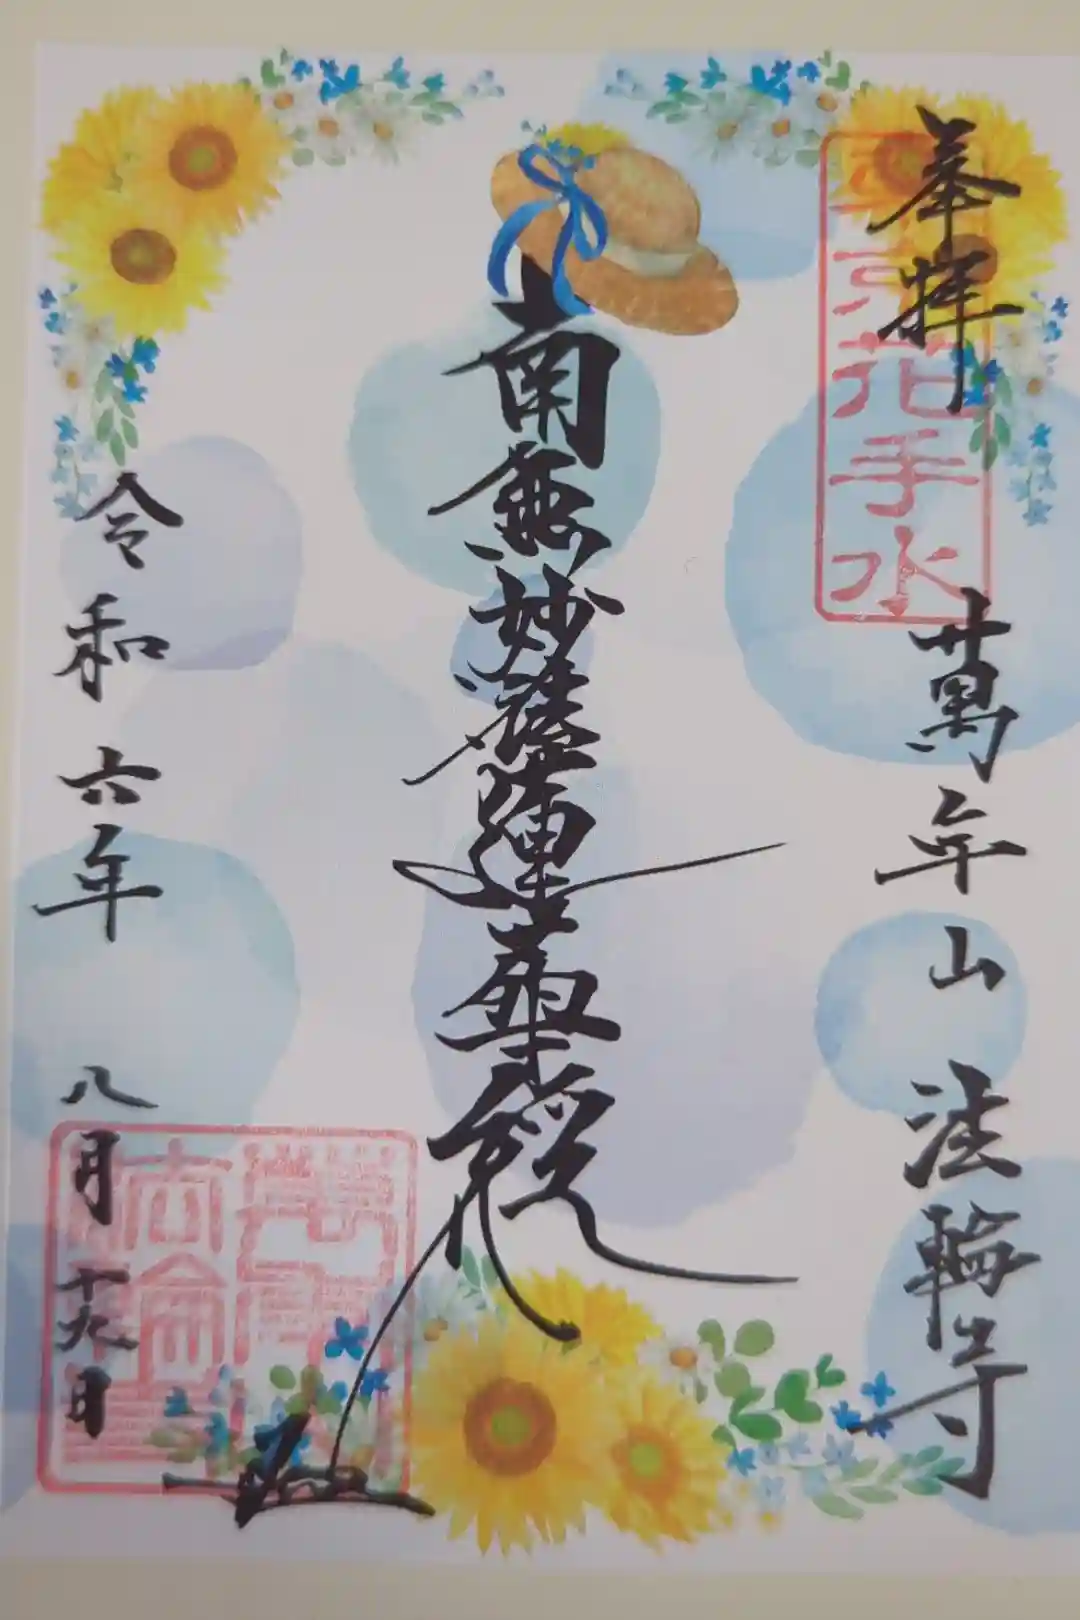 奉拝
花手水
萬年山 法輪寺
南無妙法蓮華経
令和六年 八月十九日